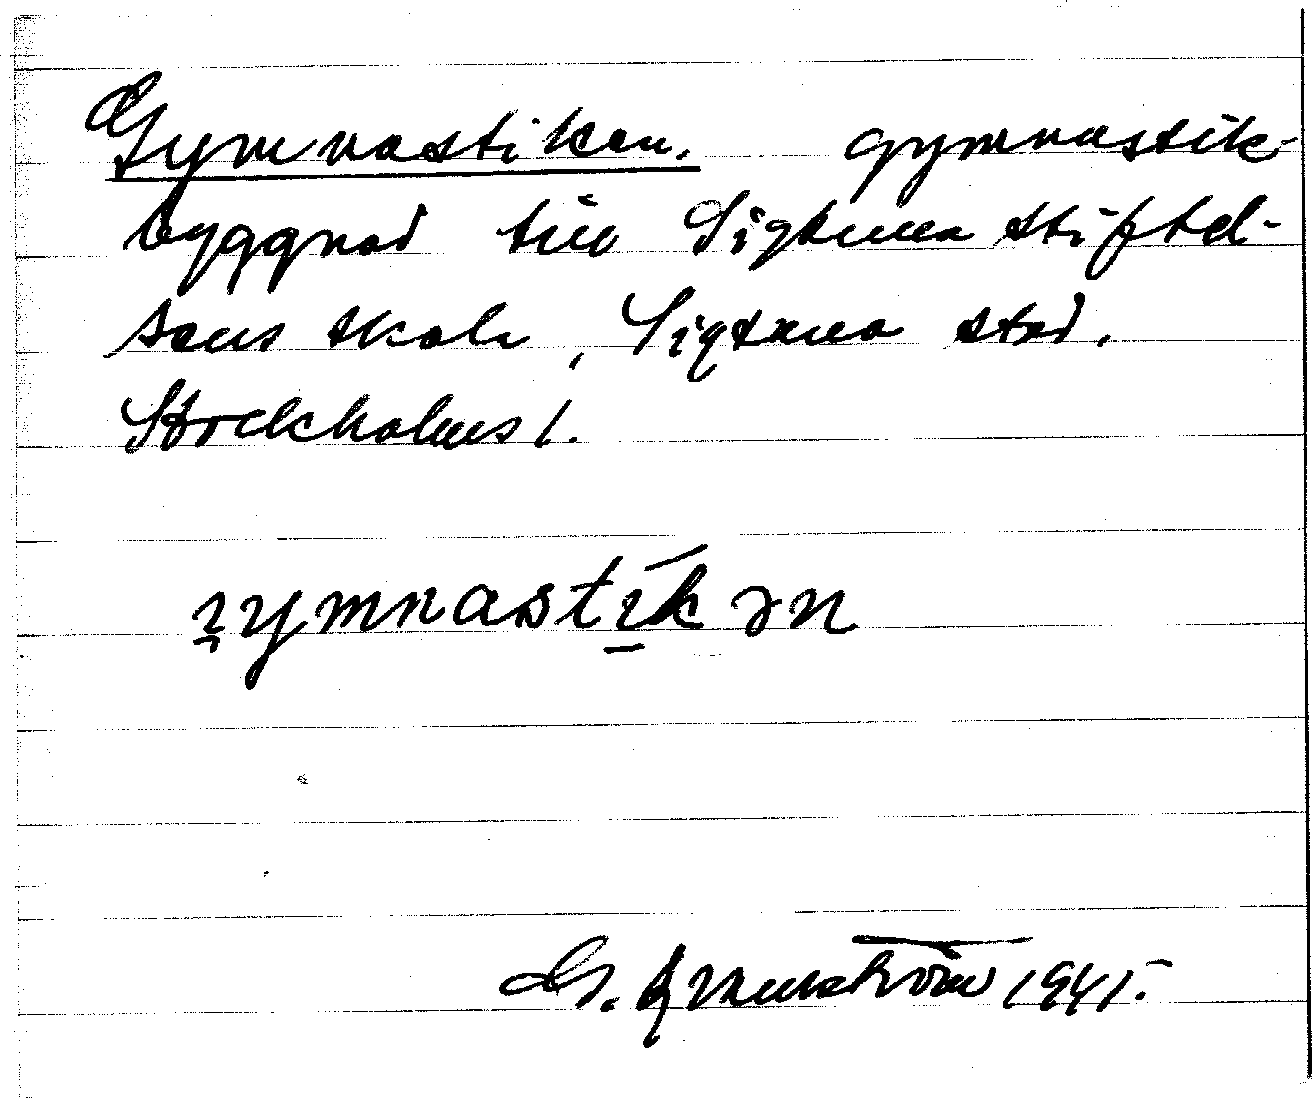 Gymnastiken. gymnastik-
byggnad till Sigtuna stiftel-
sens skola, Sigtuna stad.
Stockholms l.
ȷymnastɩ́kən
G. 1941.